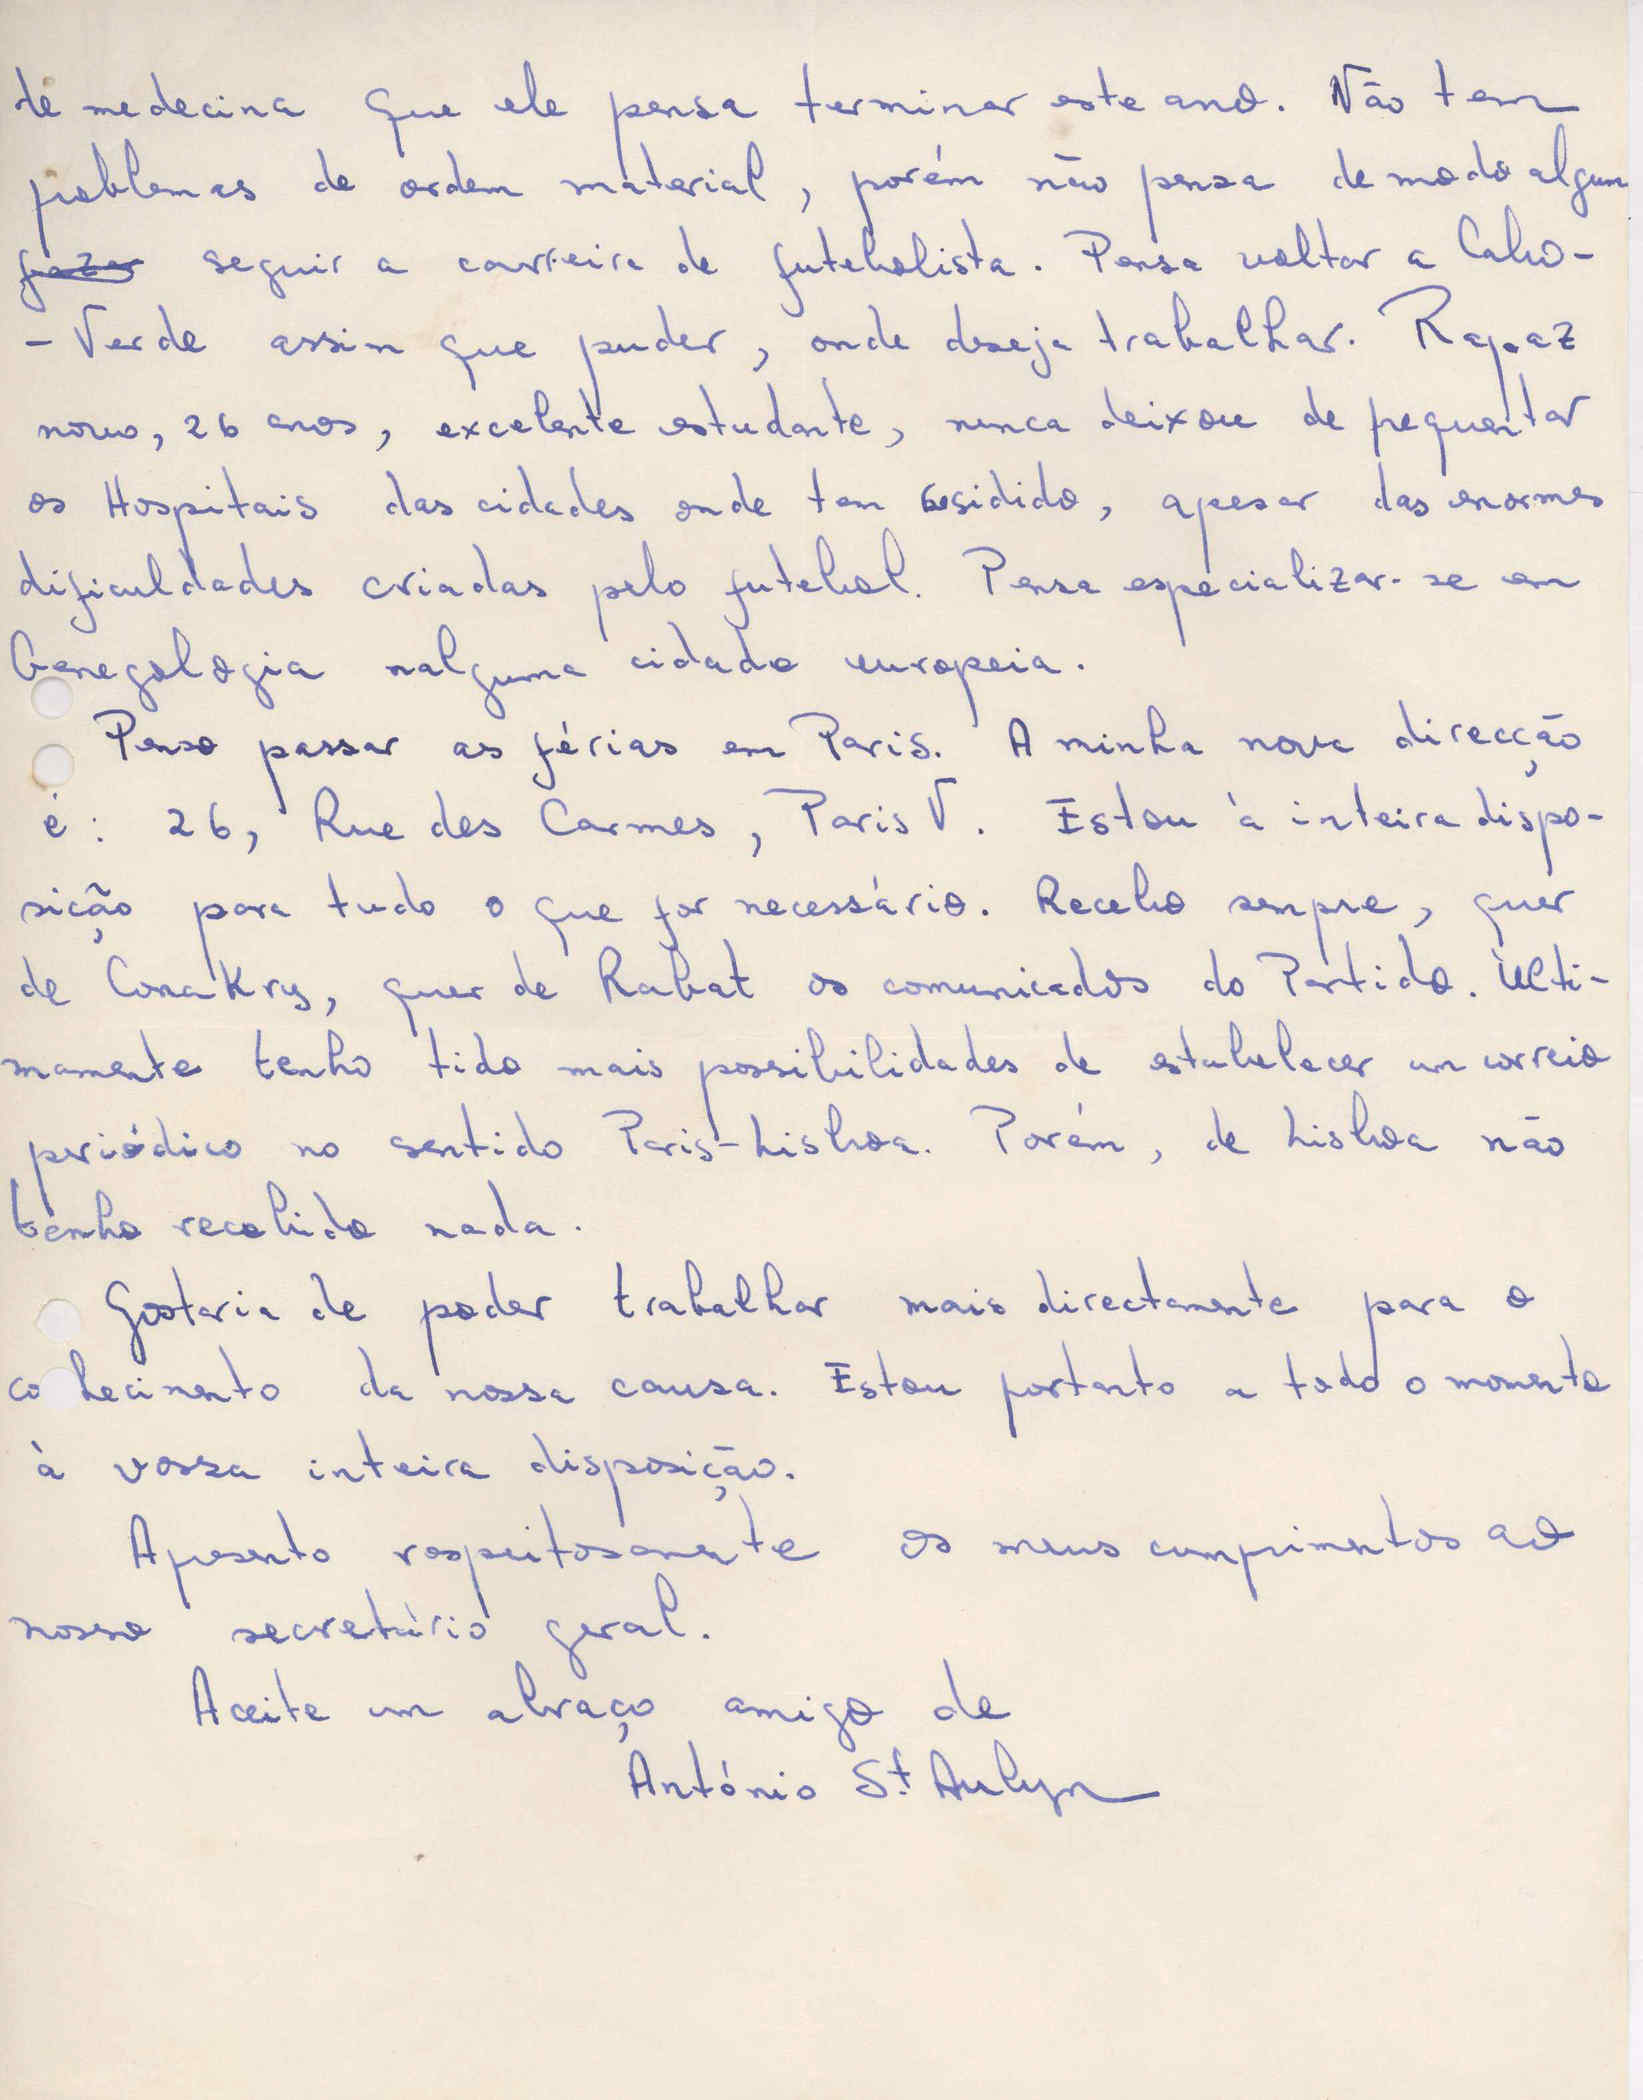 de medecina que ele pensa terminar este ano. Não tem
problemas de ordem material, porém não pensa de modo algum
fazer seguir a carreira de futebolista. Pensa voltar a Cabo-
- Verde assim que puder, onde deseja trabalhar. Rapaz
novo, 26 anos, excelente estudante, nunca deixou de frequentar
os Hospitais das cidades onde tem residido, apesar das enormes
dificuldades criadas pelo futebol. Pensa especializar-se em
Genegologia nalguma cidade europeia.
Penso passar as férias em Paris. A minha nova direcção
é: 26, Rue des Carmes, Paris V. Estou à inteira dispo-
sição para tudo o que for necessário. Recebo sempre, quer
de Conakry, quer de Rabat os comunicados do Partido. Ùlti-
mamente tenho tido mais possibilidades de estabelecer um correio
periódico no sentido Paris-Lisboa. Porém, de Lisboa não
tenho recebido nada.
Gostaria de poder trabalhar mais directamente para o
co hecimento da nossa causa. Estou portanto a todo o momento
à vossa inteira disposição.
Apresento respeitosamente os meus cumprimentos ao
nosso secretário geral.
Aceite um abraço amigo de
António St. Aubyn